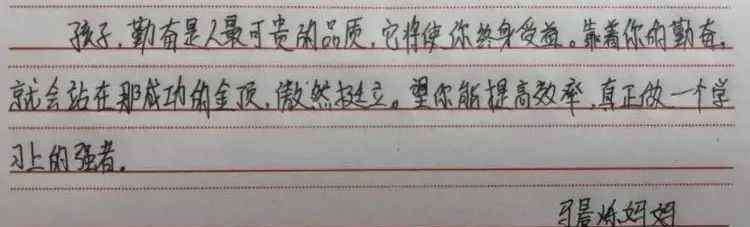 孩子,勤奋是人最可贵的品质,它将使你终身受益。靠着你的勤奋,
就会站在那成功的金顶,傲然挺立。望你能提高效率,真正做一个学
习上的强者。
妈妈